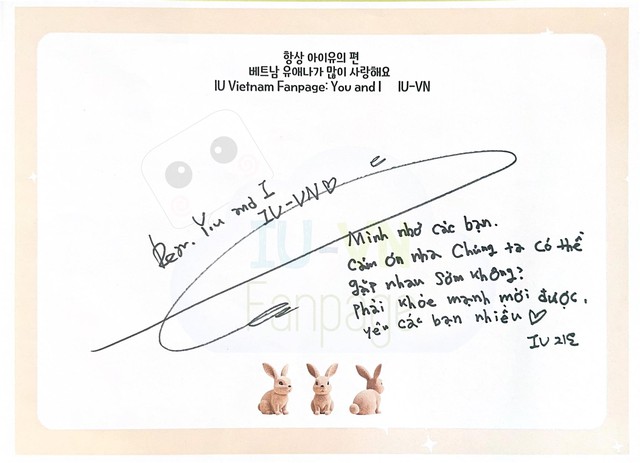 항상 아이유의 편
베트남 유애나가 많이 사랑해요
IU Vietnam Fanpage: You and I IU-VN
Dear. You and I
IU-VN♡
IU-VN
Fanpage
Mình nhớ các bạn.
Cảm ơn nha Chúng ta có thể
gặp nhau sớm không?
phải khỏe mạnh mới được.
yêu các bạn nhiều ♡
IU 지은